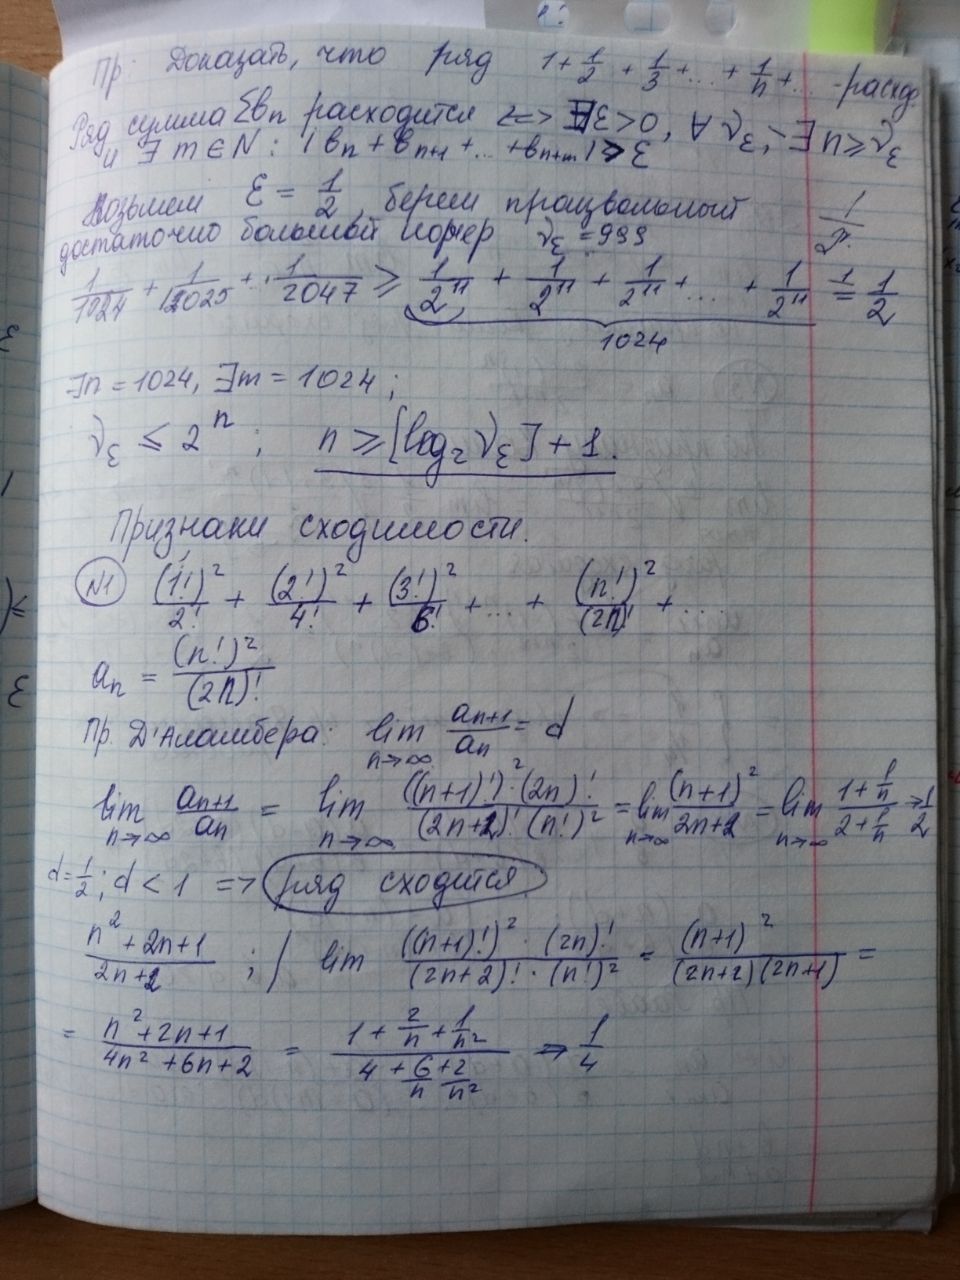 Пр: Доказать, что ряд 1 + 1/2 + 1/3 + ... + 1/n + ... - расход.
Ряд сумма Σbₙ расходится <=> ∃ε>0, ∀ν_ε, ∃n≥ν_ε
и ∃ m∈N: |bₙ + bₙ₊₁ + ... + bₙ₊ₘ| ≥ ε
Возьмем ε = 1/2, берем произвольный
достаточно большой номер ν_ε = 999
1/1024 + 1/2025 + ... 1/2047 ≥ 1/2¹¹ + 1/2¹¹ + 1/2¹¹ + ... + 1/2¹¹ = 1/2
1024
∃n = 1024, ∃m = 1024;
ν_ε ≤ 2ⁿ; n ≥ [log₂ν_ε] + 1.
Признаки сходимости.
N1 (1!)²/2! + (2!)²/4! + (3!)²/6! + ... + (n!)²/(2n)! + ...
aₙ = (n!)²/(2n)!
Пр. Д'Аламбера: lim n→∞ aₙ₊₁/aₙ = d
lim n→∞ aₙ₊₁/aₙ = lim n→∞ ((n+1)!)²·(2n)!/(2n+2)!(n!)² = lim n→∞ (n+1)²/2n+2 = lim n→∞ 1+1/n / 2+1/n → 1/2
d = 1/2; d < 1 => ряд сходится
n²+2n+1/2n+2 ; / lim ((n+1)!)²·(2n)!/(2n+2)!·(n!)² = (n+1)²/(2n+2)(2n+1) =
= n²+2n+1/4n²+6n+2 = 1+2/n+1/n² / 4+6/n+2/n² => 1/4